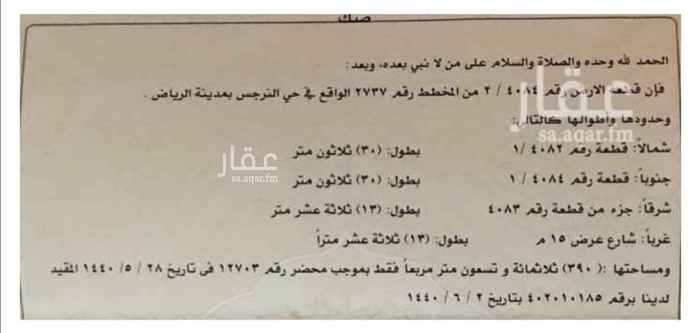 صك
الحمد لله وحده والصلاة والسلام على من لا نبي بعده، وبعد:
فإن قطعة الارض رقم ٤٠٨٤ / ٢ من المخطط رقم ٢٧٣٧ الواقع في حي النرجس بمدينة الرياض .
وحدودها وأطوالها كالتالي:
شمالاً: قطعة رقم ٤٠٨٢ /١ بطول: (٣٠) ثلاثون متر
جنوباً: قطعة رقم ٤٠٨٤ / ١ بطول: (٣٠) ثلاثون متر
شرقاً: جزء من قطعة رقم ٤٠٨٣ بطول: (١٣) ثلاثة عشر متر
غرباً: شارع عرض ١٥ م بطول: (١٣) ثلاثة عشر متراً
ومساحتها :( ٣٩٠) ثلاثمائة و تسعون متر مربعاً فقط بموجب محضر رقم ١٢٧٠٣ في تاريخ ٢٨ /٥ /١٤٤٠ المقيد
لدينا برقم ٤٠٢٠١٠١٨٥ بتاريخ ٢ / ٦ / ١٤٤٠
عقار
sa.aqar.fm
عقار
sa.aqar.fm